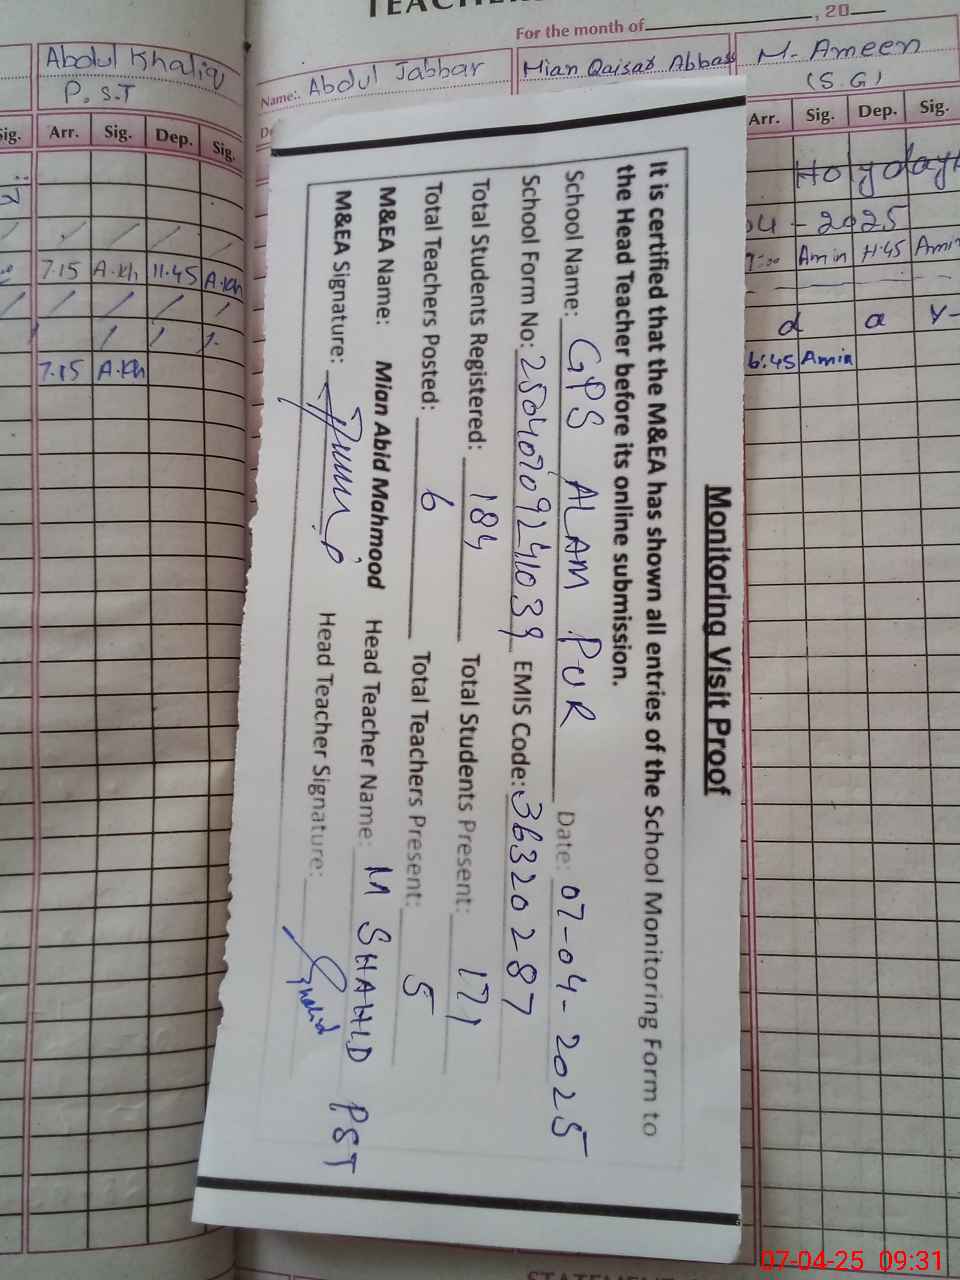 TEACHER
For the month of , 20
Abdul Khaliq
P.S.T
Name:. Abdul Jabbar
Mian Qaisar Abbas
M. Ameen
(S.G)
Sig. Arr. Sig. Dep. Sig.
Arr. Sig. Dep. Sig.
Holyday
04-2025
7.15 A.Kh 11.45 A.Kh
Amin 11.45 Amin
d a y
7.15 A.Kh
6:45 Amin
Monitoring Visit Proof
It is certified that the M&EA has shown all entries of the School Monitoring Form to
the Head Teacher before its online submission.
School Name: GPS ALAM PUR Date: 07-04-2025
School Form No: 25040709241039 EMIS Code: 36320287
Total Students Registered: 184 Total Students Present: 171
Total Teachers Posted: 6 Total Teachers Present: 5
M&EA Name: Mian Abid Mahmood Head Teacher Name: M SHAHID PST
M&EA Signature: Head Teacher Signature: Shahid
07-04-25 09:31